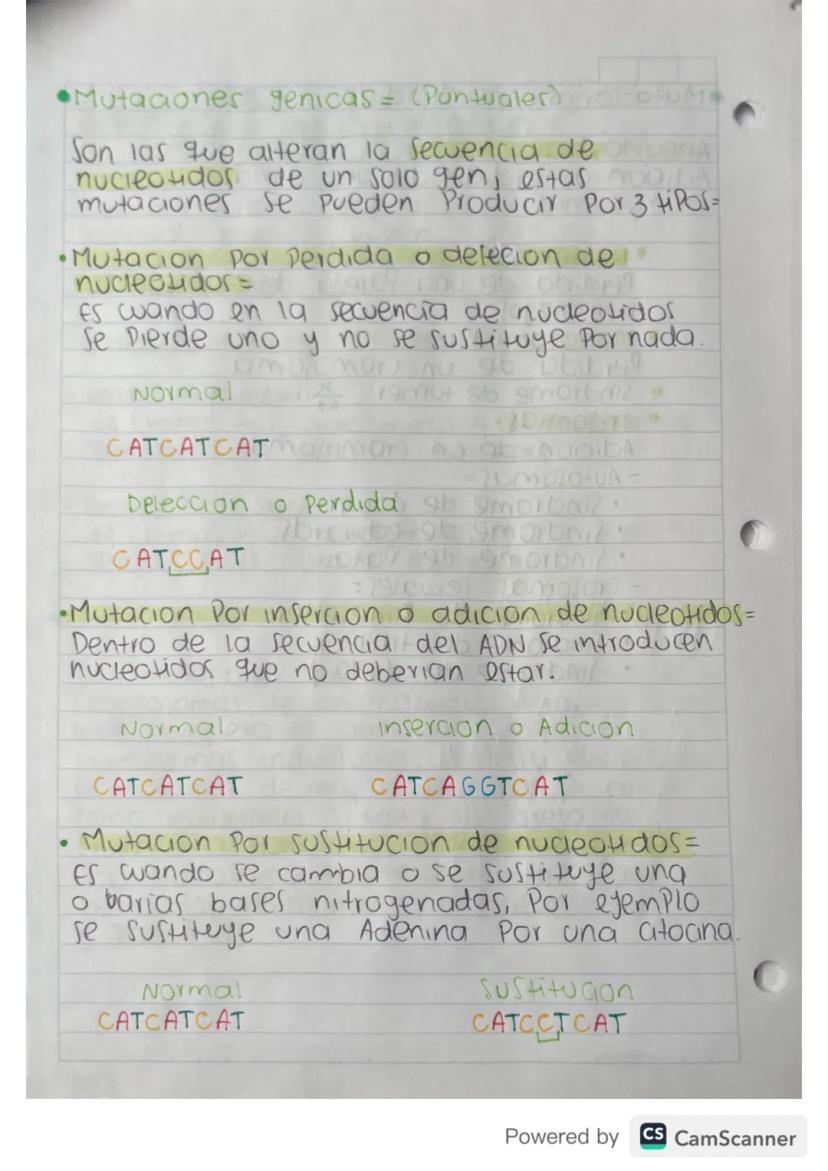 •Mutaciones genicas= (Puntuales)
Son las que alteran la secuencia de
nucleotidos de un solo gen, estas
mutaciones se pueden Producir Por 3 tipos=
•Mutacion por perdida o delecion de
nucleotidos=
Es cuando en la secuencia de nucleotidos
se pierde uno y no se sustituye por nada.
Normal
CATCATCAT
Deleccion o Perdida
CATCCAT
•Mutacion Por insercion o adicion de nucleotidos=
Dentro de la secuencia del ADN se introducen
nucleotidos que no deberian estar.
Normal    insercion o Adicion
CATCATCAT    CATCAGGTCAT
• Mutacion Por sustitucion de nucleotidos=
Es cuando se cambia o se sustituye una
o barias bases nitrogenadas, Por ejemplo
se sustituye una Adenina Por una citocina.
Normal    Sustitucion
CATCATCAT    CATCCTCAT
Powered by CS CamScanner